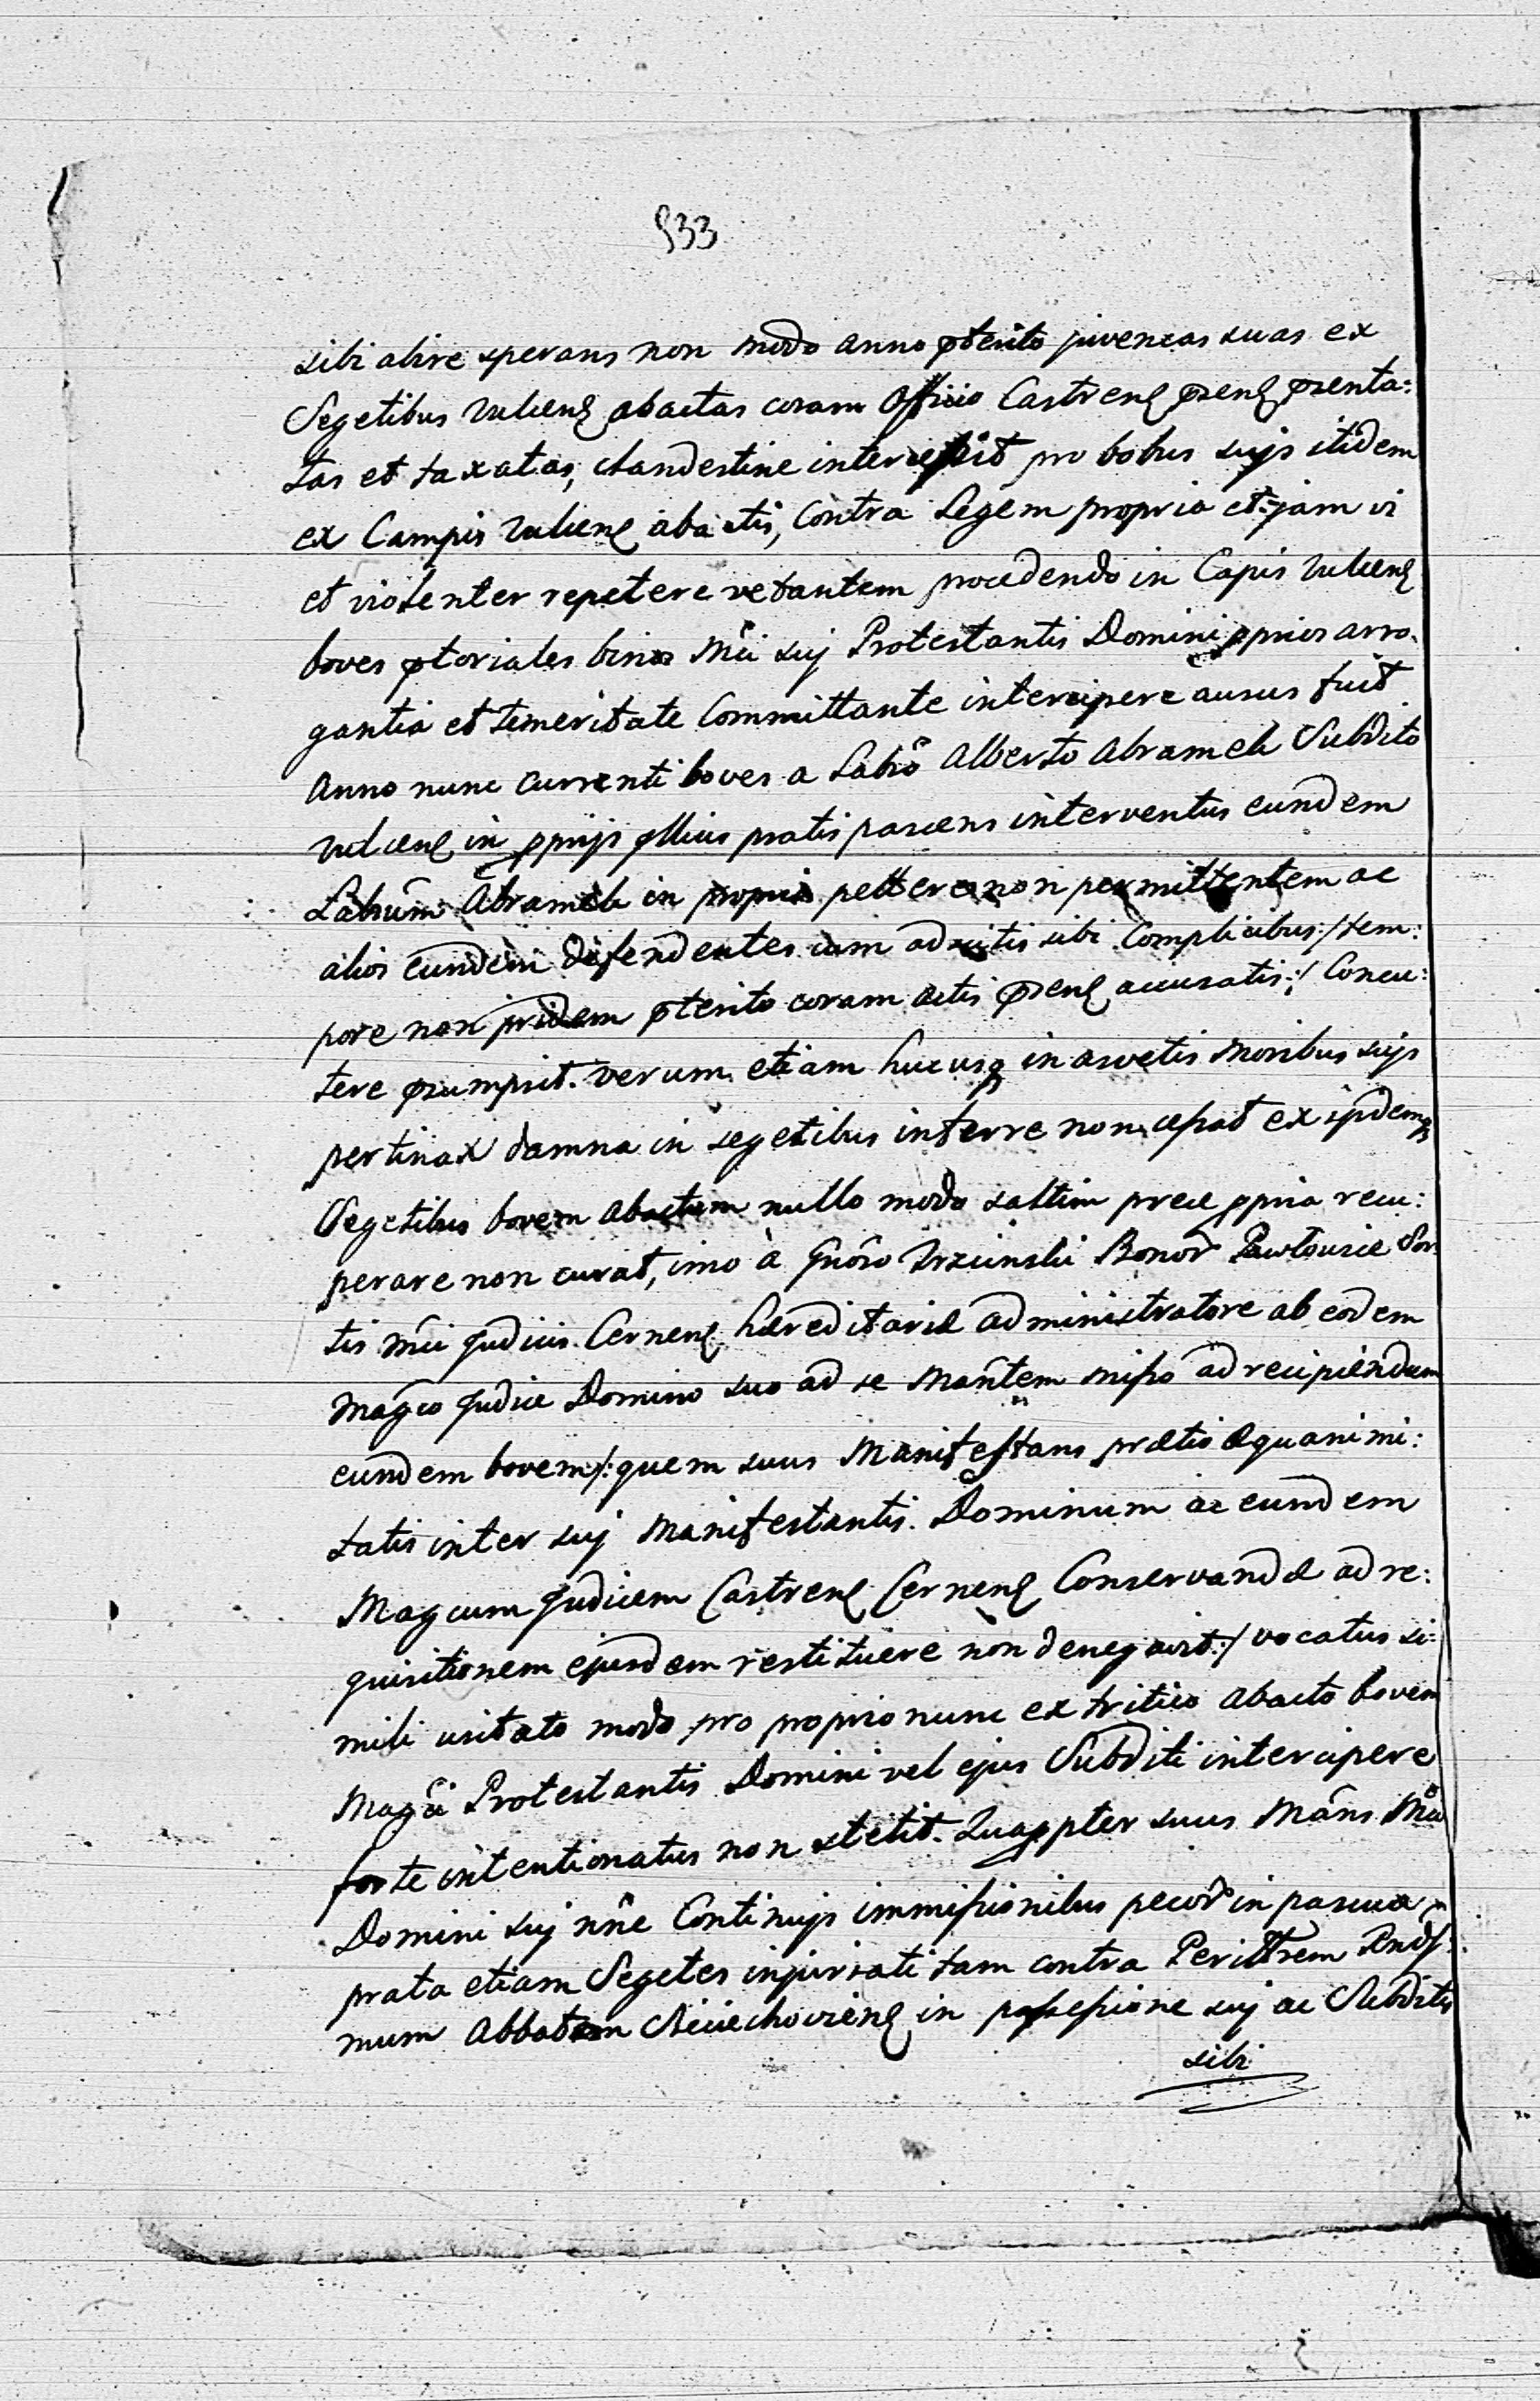 533
sibi abire sperans non modo anno pterito juvencas suas ex
Segetibus Vulcens abactas coram Officio Castrens prens prenta:
tas et taxatas, clandestine intercepit pro bobus sujs itidem
ex Campis Vulcens abactis, Contra Legem propria et jam vi
et violenter repetere vetantem procedendo in Capis Vulcens
boves ptoriales binos Mci suj Protestantis Domini pprios arro-
gantia et temeritate Committante intercipere ausus fuit
Anno nunc currenti boves a Labo Alberto Abramek Subdito
Vulcens in pprijs illius pratis pascens interventus eundem
Labum Abramek in propria pellere non permittentem ac
alios eundem defendentes cum adscitis sibi Complicibus :/tem:
pore non pridem pterito coram actis prens accusatis:/ Concu:
tere prumpsit. verum etiam hucusq in asvetis moribus sujs
pertinax damna in segetibus inferre non cessat ex ijsdemq
Segetibus bovem abactum nullo modo saltim prece ppria recu:
perare non curat, imo à Gnoso Urzcinski Bonor Pawlowice Sor
tis Mci Judicis Cernens hæreditariæ administratore ab eodem
Magco Judice Domino suo ad se Mantem misso ad recipiendum
eundem bovem/: quem suus Manifestans prætio æquanimi:
tatis inter suj Manifestantis Dominum ac eundem
Magcum Judicem Castrens Cernens Conservandæ ad re:
quisitionem ejusdem restituere non denegavit:/ vocatus si:
mili usitato modo pro proprio nunc ex tritico abacto bovem
Magci Protestantis Domini vel ejus Subditi intercipere
forte intentionatus non stetit. Quappter suus Mans Mci
Domini suj nne Continujs immissionibus pecor in pascua
prata etiam Segetes injuriati tam contra Perillrem Rnds:
mum Abbatem Miechoviens in possessione suj ac Subditis
sibi